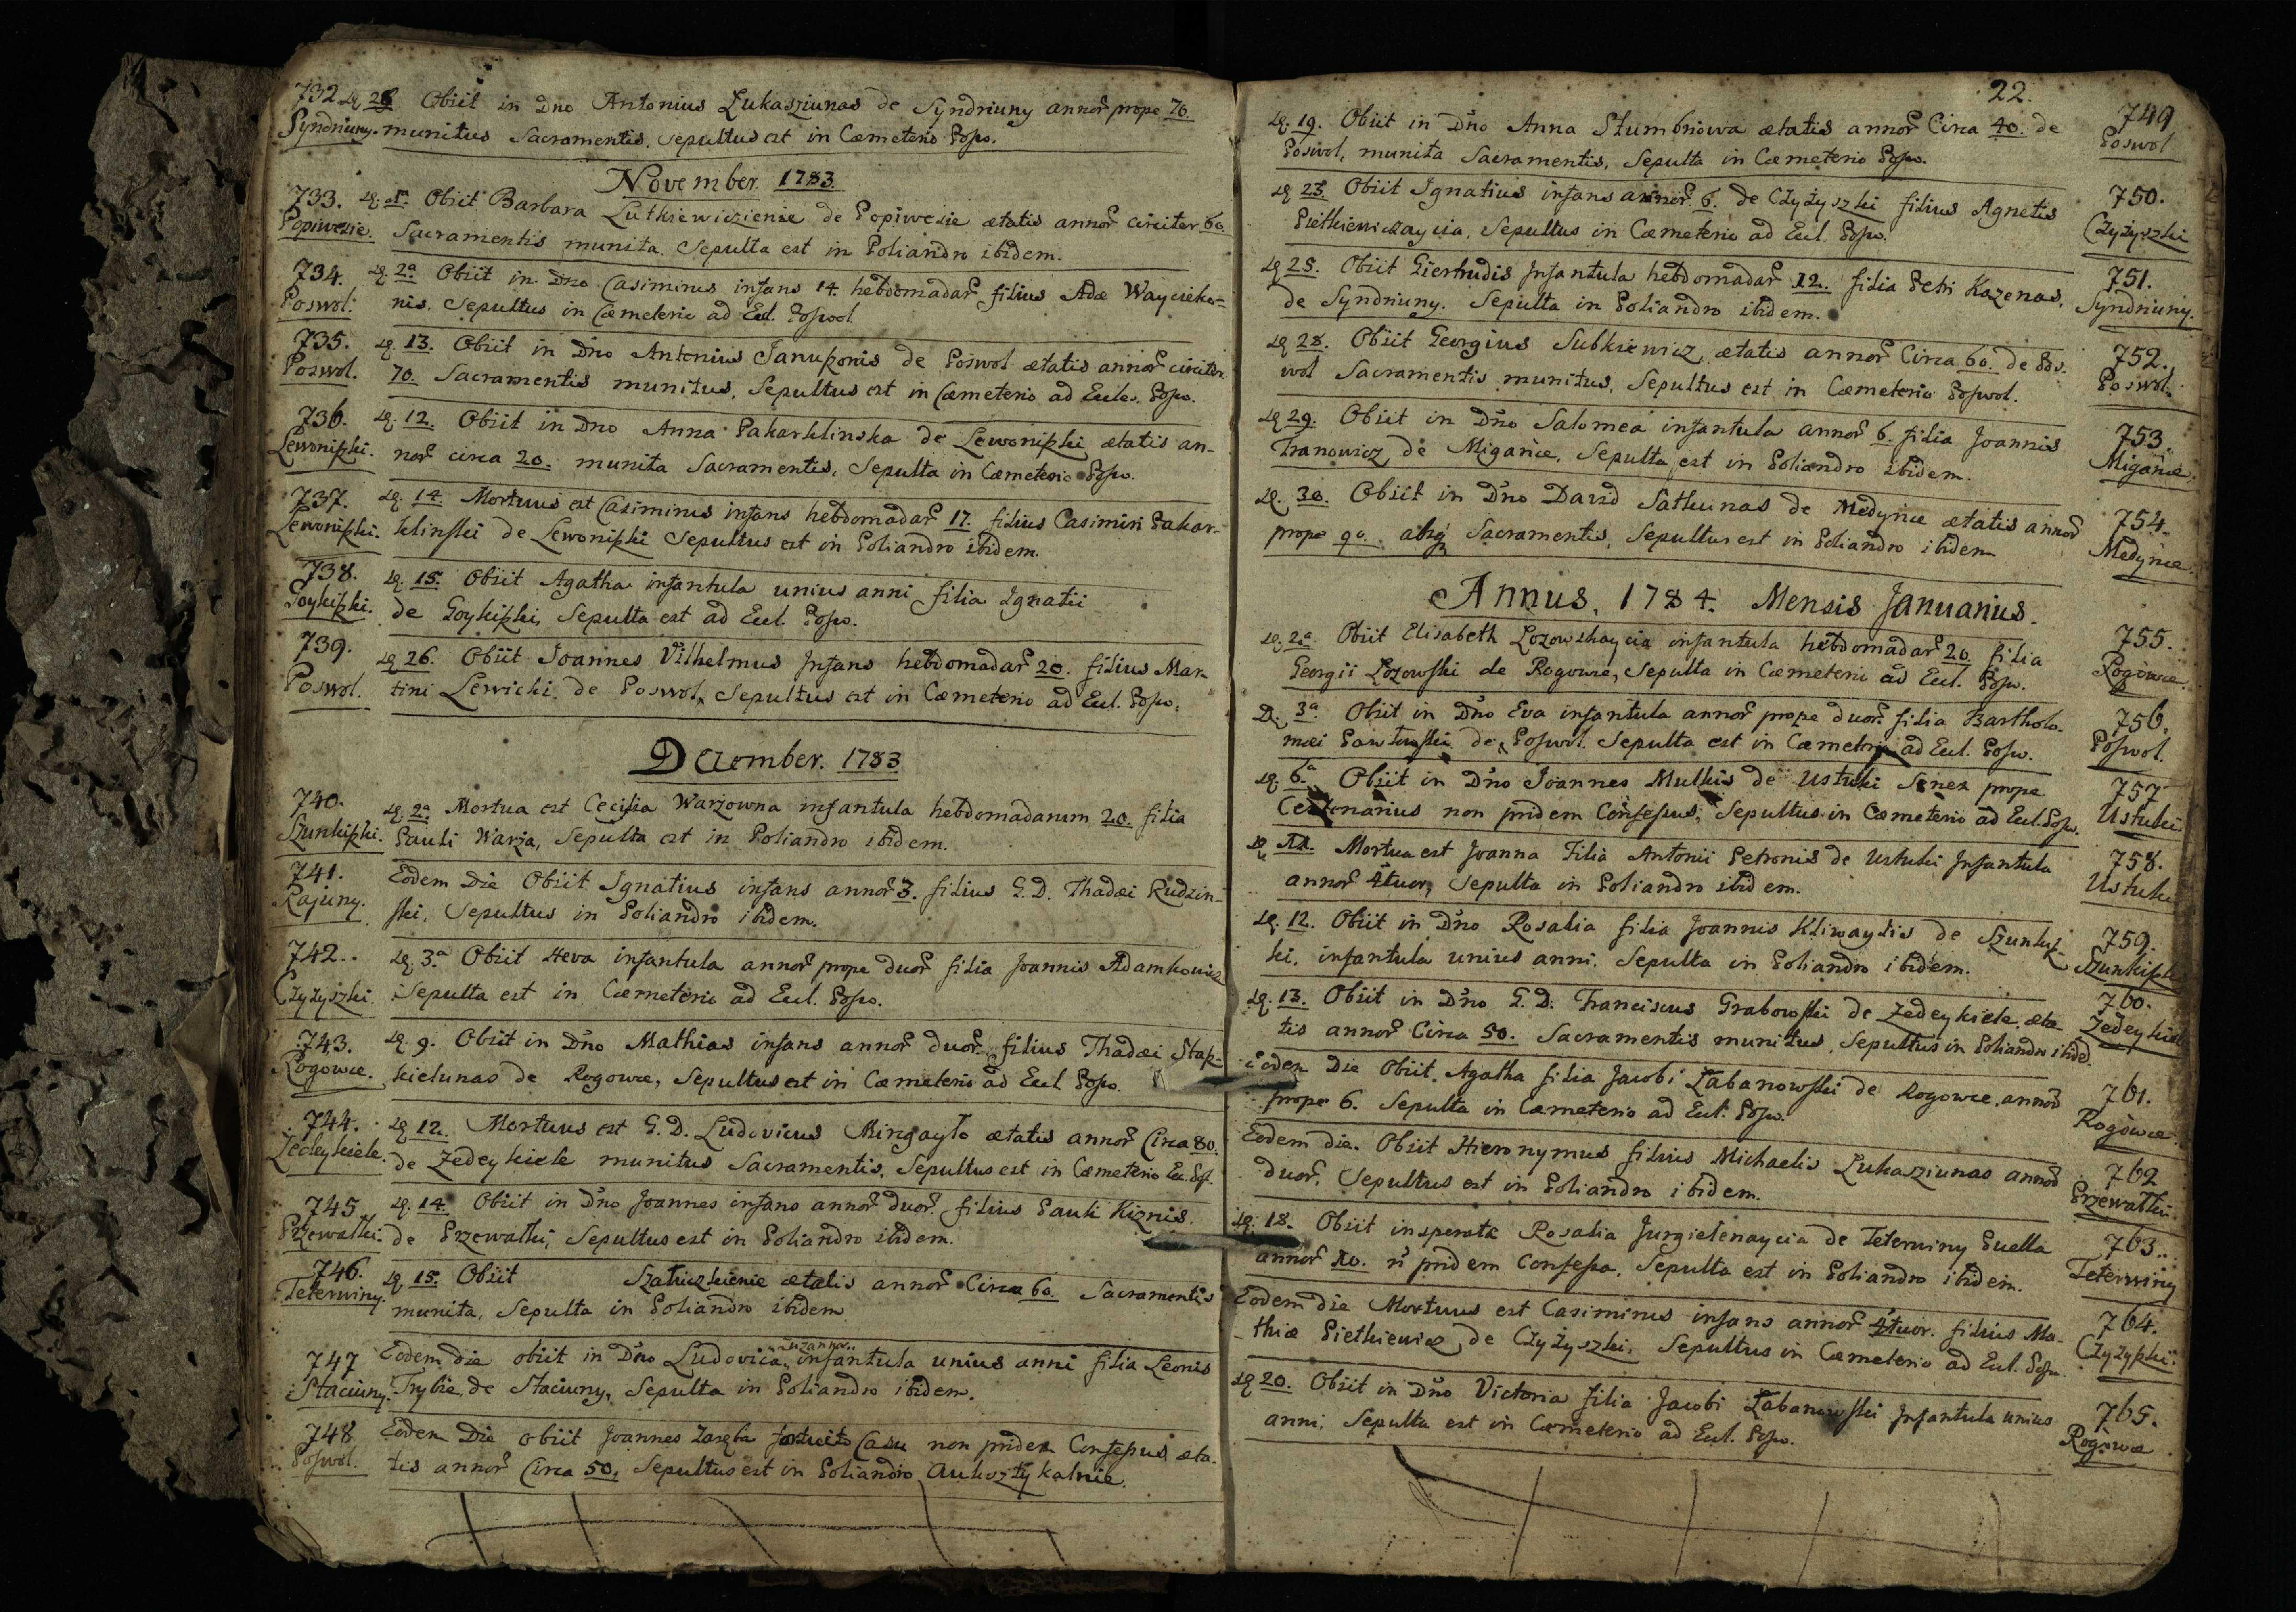 732 D. 26. Obiit in Dno Antonius Lukasziunas de Syndriuny annor̃ prope 70.
Syndriuny. munitus Sacramentis, sepultus est in Cæmeterio Posw.
November. 1783.
733. D. 1a. Obiit Barbara Lutkiewiczienie de Popiwesie ætatis annor̃ circiter 60.
Popiwesie. Sacramentis munita. Sepulta est in Poliandro ibidem.
734. D. 2a Obiit in Dno Casimirus infans 14. hebdomadar̃ filius Adæ
Poswol. nis, Sepultus in Cæmeterio ad Eccl. Poswol
735. D. 13. Obiit in Dno Antonius Januszonis de Poswol ætatis annor̃ circiter
Poswol. 70. Sacramentis munitus, Sepultus est in Cæmeterio ad Eccles. Posw.
736. D. 12. Obiit in Dno Anna Pakarklinska de Lewoniszki ætatis an-
Lewoniszki. nor̃ circa 20. munita Sacramentis, Sepulta in Cæmeterio Posw.
737. D. 14. Mortuus est Casimirus infans hebdomadar̃ 17. filius Casimiri Pakar-
Lewoniszki. klinski de Lewoniszki Sepultus est in Poliandro ibidem.
738. D. 15. Obiit Agatha infantula unius anni filia Ignatii
Goykiszki. de Goykiszki, Sepulta est ad Eccl. Posw.
739. D. 26. Obiit Joannes Vilhelmus Infans hebdomadar̃ 20. filius Mar
Poswol. tini Lewicki de Poswol, Sepultus est in Cæmeterio ad Eccl. Posw.
December. 1783
740. D. 2a Mortua est Cecilia Warzowna infantula hebdomadarum 20. filia
Szunkiszki. Pauli Warza, Sepulta est in Poliandro ibidem.
741. Eodem Die Obiit Ignatius infans annor̃ 3. filius G. D. Thadæi Rudzin-
Rajuny. ski, Sepultus in Poliandro ibidem.
742.. D. 3a Obiit Heva infantula annor̃ prope duor̃ filia Joannis Adamkowicz
Czyżyszki. Sepulta est in Cæmeterio ad Eccl. Posw.
743. D. 9. Obiit in Dno Mathias infans annor̃ duor̃. filius Thadæi Stap-
Rogowce. kielunas de Rogowce, Sepultus est in Cæmeterio ad Eccl. Posw.
744. D. 12. Mortuus est G. D. Ludovicus Mingayło ætatis annor̃ Circa 80.
Zedeykiele. de Zedeykiele munitus Sacramentis, Sepultus est in Cæmeterio Ec. Pos.
745 D. 14. Obiit in Dno Joannes infans annor̃ duor̃. filius Pauli Kiznis.
Przewałki. de Przewałki, Sepultus est in Poliandro ibidem.
746. D. 15. Obiit Szatiuzkienie ætatis annor̃ Circa 60. Sacramentis
Teterwiny. munita, Sepulta in Poliandro ibidem
747 Eodem die obiit in Dno Ludovica Suzanna infantula unius anni filia Leonis
Staciuny. Trybie, de Staciuny, Sepulta in Poliandro ibidem.
748 Eodem Die obiit Joannes Zaręba fortuito Casu non pridem Confessus, æta-
Poswol. tis annor̃ Circa 50, Sepultus est in Poliandro Aukszty kalnie.
22.
D. 19. Obiit in Dno Anna Stumbriowa ætatis annor̃ Circa 40. de 749
Poswol, munita Sacramentis, Sepulta in Cæmeterio Posw. Poswol
D. 23. Obiit Ignatius infans annor̃. 6. de Czyżyszki filius Agnetis 750.
Pietkiewiczaycia, Sepultus in Cæmeterio ad Eccl. Posw. Czyżyszki
D. 25. Obiit Giertrudis Infantula hebdomadar̃ 12. filia Petri Kazenas, 751.
de Syndriuny. Sepulta in Poliandro ibidem. Syndriuny.
D. 28. Obiit Georgius Subkiewicz, ætatis annor̃ Circa 60. de Pos. 752.
wol Sacramentis munitus, Sepultus est in Cæmeterio Poswol. Poswol.
D. 29. Obiit in Dno Salomea infantula annor̃ 6. filia Joannis 753.
Franowicz, de Migańce, Sepulta est in Poliandro ibidem. Migańce.
D. 30. Obiit in Dno David Satkunas de Medynie ætatis annor̃ 754.
prope 90. absq Sacramentis, Sepultus est in Poliandro ibidem Medynie.
Annus, 1784. Mensis Januarius.
D. 2a. Obiit Elisabeth Lozowskaycia infantula hebdomadar̃ 20. filia 755.
Georgii Lozowski de Rogowce, Sepulta in Cæmeterio ad Eccl. Posw. Rogowce.
D. 3a. Obiit in Dno Eva infantula annor̃ prope duor̃. filia Bartholo- 756.
mæi de Poswol. Sepulta est in Cæmeterio ad Eccl. Posw. Poswol.
D. 6a. Obiit in Dno Joannes Mulkis de Ustuki Senex prope 757
Centenarius non pridem Confessus, Sepultus in Cæmeterio ad Eccl. Posw. Ustuki.
D. 11. Mortua est Joanna Filia Antonii Petronis de Ustuki Infantula 758.
annor̃ 4tuor, Sepulta in Poliandro ibidem. Ustuki
D. 12. Obiit in Dno Rosalia filia Joannis Kliwaytis de Szunkisz- 759.
ki, infantula unius anni. Sepulta in Poliandro ibidem. Szunkiszki
D. 13. Obiit in Dno G. D. Franciscus Grabowski de Zedeykiele, æta 760.
tis annor̃ Circa 50. Sacramentis munitus, Sepultus in Poliandro ibid. Zedeykiele
Eodem Die Obiit, Agatha filia Jacobi Łabanowski de Rogowce, annor̃ 761.
prope 6. Sepulta in Cæmeterio ad Eccl. Posw. Rogowce.
Eodem die. Obiit Hieronymus filius Michaelis Lukaziunas annor̃ 762
duor̃, Sepultus est in Poliandro ibidem. Przewałki.
D. 18. Obiit insperate Rosalia Jurgielenaycia de Teterwiny Puella 763..
annor̃ 10. ñ pridem Confessa, Sepulta est in Poliandro ibidem. Teterwiny
Eodem die Mortuus est Casimirus infans annor̃ 4tuor. filius Ma- 764.
thiæ Pietkiewicz, de Czyżyszki, Sepultus in Cæmeterio ad Eccl. Posw. Czyżyszki.
D. 20. Obiit in Dno Victoria filia Jacobi Łabanowski Infantula unius 765.
anni, Sepulta est in Cæmeterio ad Eccl. Posw. Rogowce